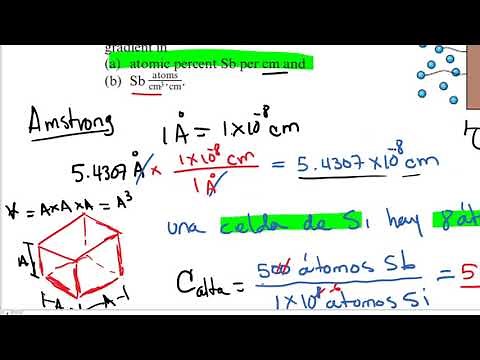 gradient in
(a) atomic percent Sb per cm and
(b) Sb atoms/cm³·cm.
Amstrong
1 Å = 1x10⁻⁸ cm
5.4307 Å x 1x10⁻⁸ cm / 1 Å = 5.4307x10⁻⁸ cm
V = A x A x A = A³
A
A
A
una celda de Si hay 8 át
C alta = 500 átomos Sb / 1x10⁸⁻⁶ átomos Si = 5